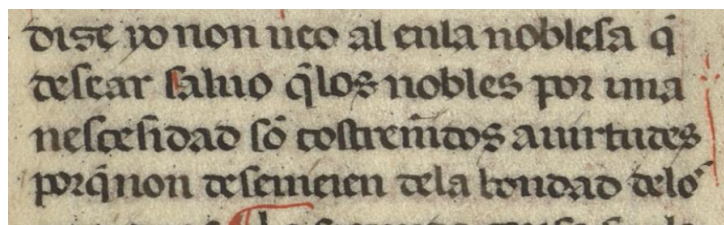 dise yo non ueo al enla noblesa q̃
desear saluo q̃los nobles por una
nesçesidad sõ costren̄idos auirtudes
porq̃non desemeien dela bondad delos